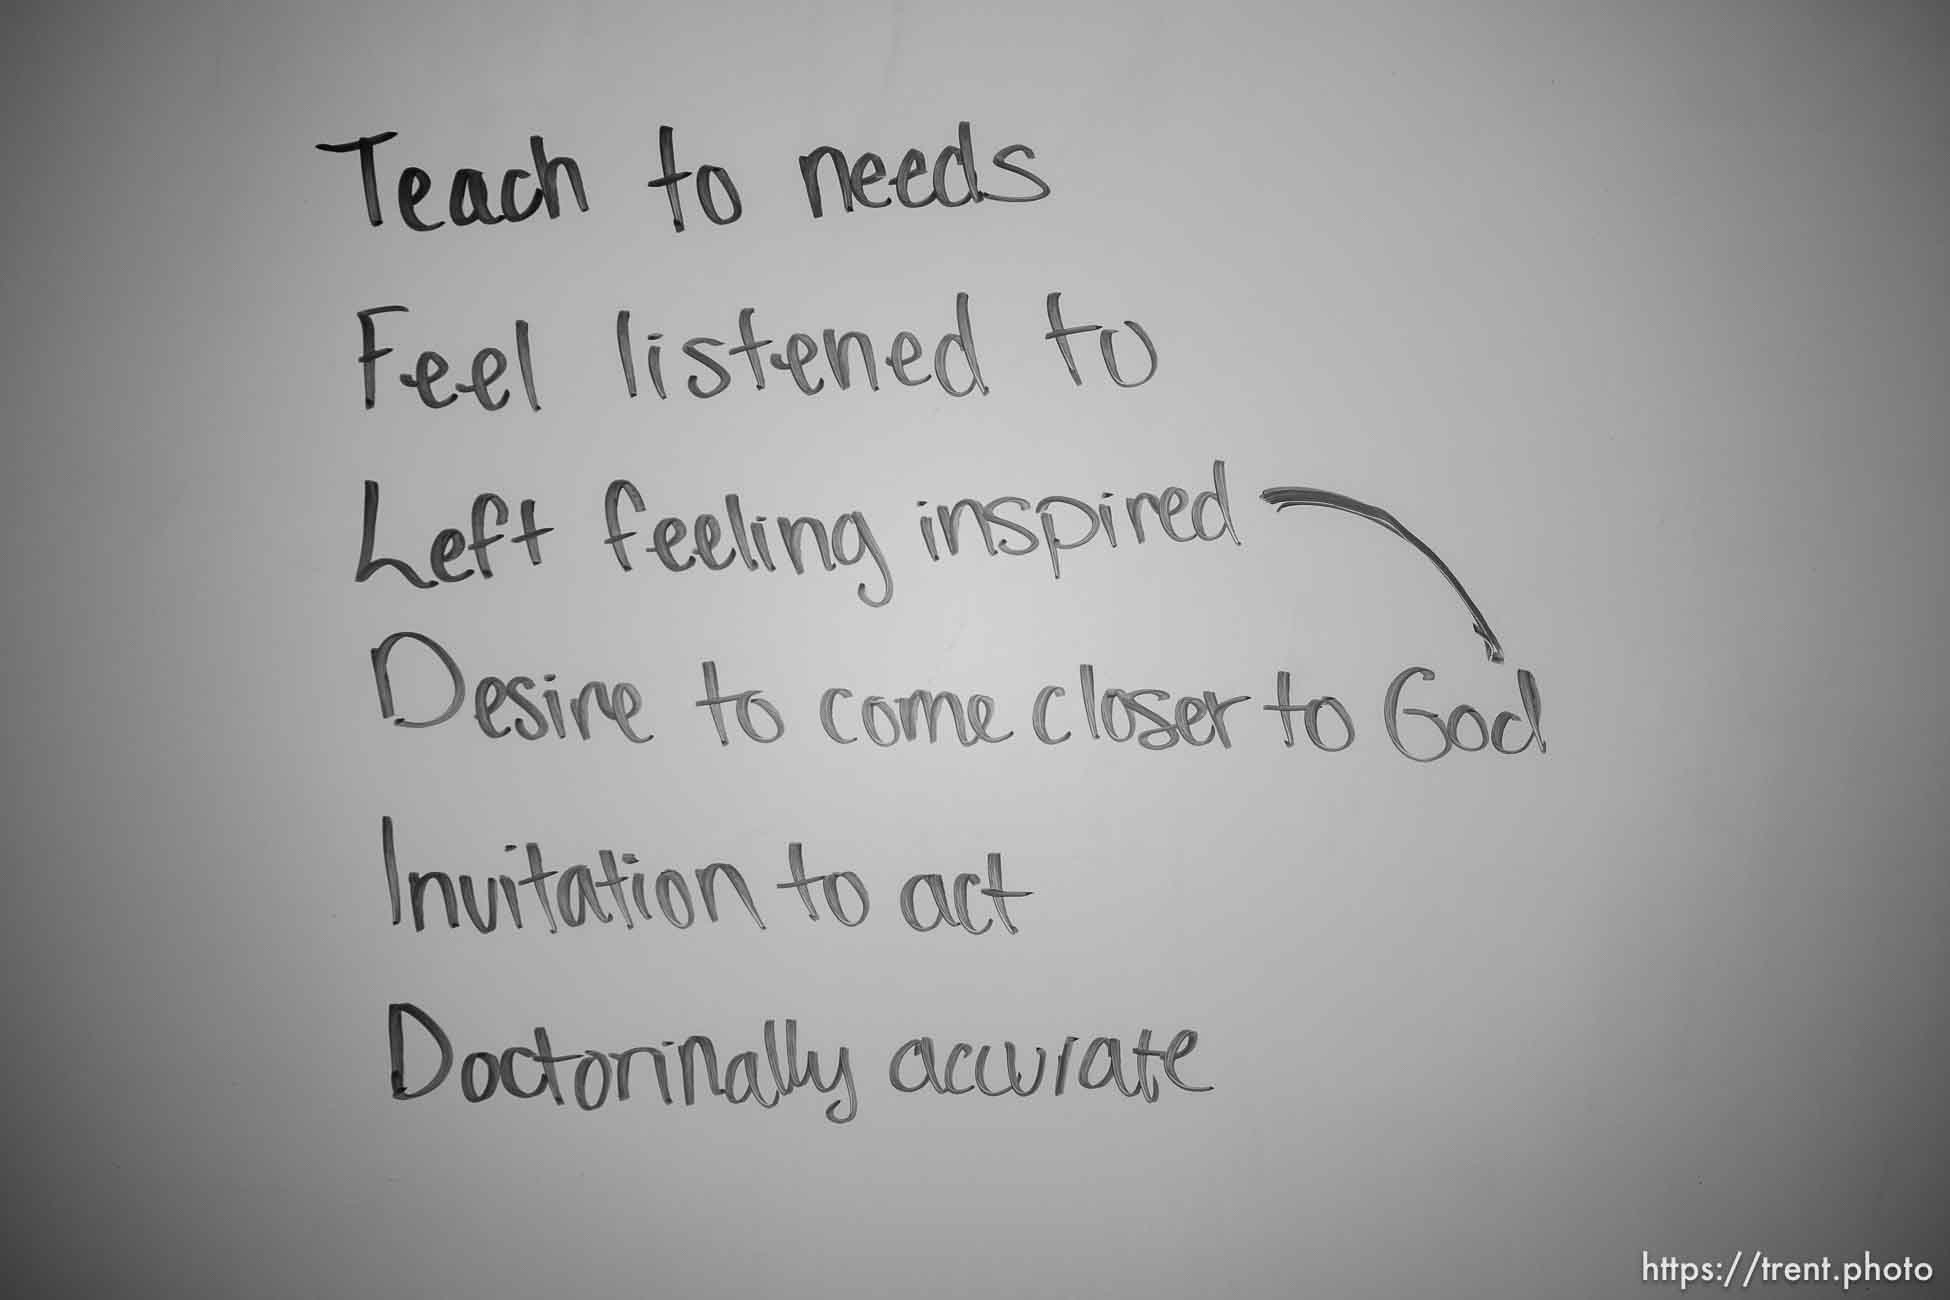 Teach to needs
Feel listened to
Left feeling inspired
Desire to come closer to God
Invitation to act
Doctorinally accurate
https://trent.photo